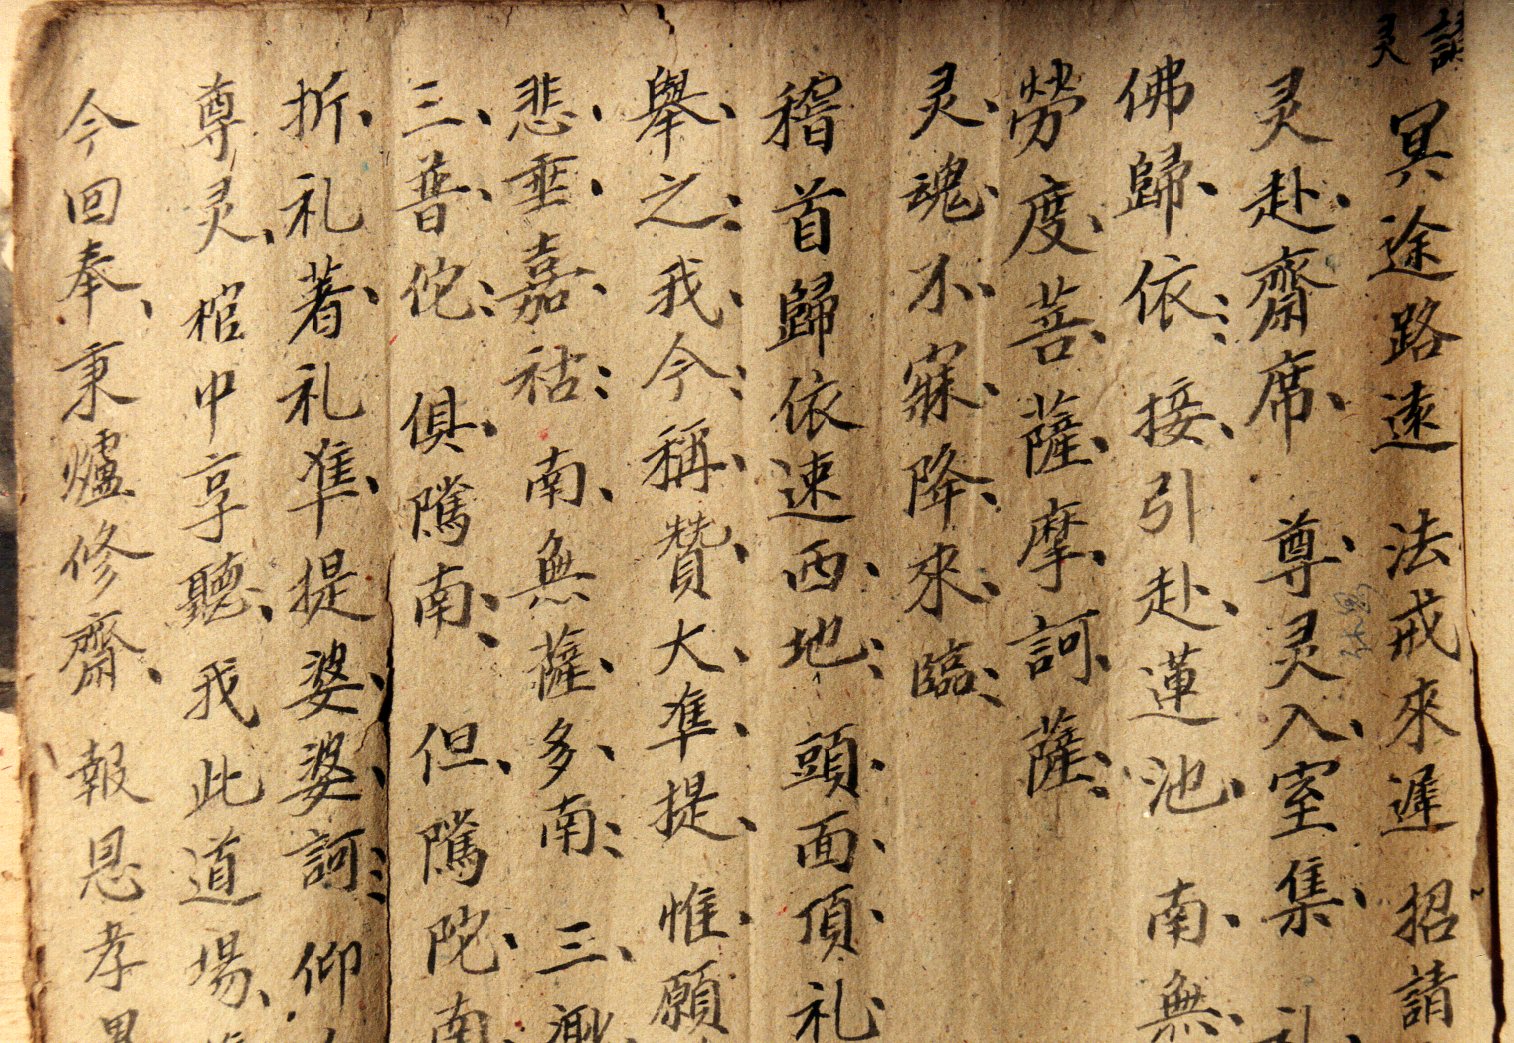 請灵
冥途路遠 法戒來遲 招請
灵赴齋席 尊灵入室集 礼
佛歸依 接引赴蓮池 南無
勞度菩薩摩訶薩
灵魂不寐降來臨
稽首歸依速西地 頭面頂礼
舉之我今稱贊大準提 惟願
悲垂嘉祜 南無薩多南 三
三普佗 俱隲南 但隲陀 南
折礼著礼准提婆婆訶 仰
尊灵棺中享聽我此道場
今回奉秉爐修齋 報恩孝男